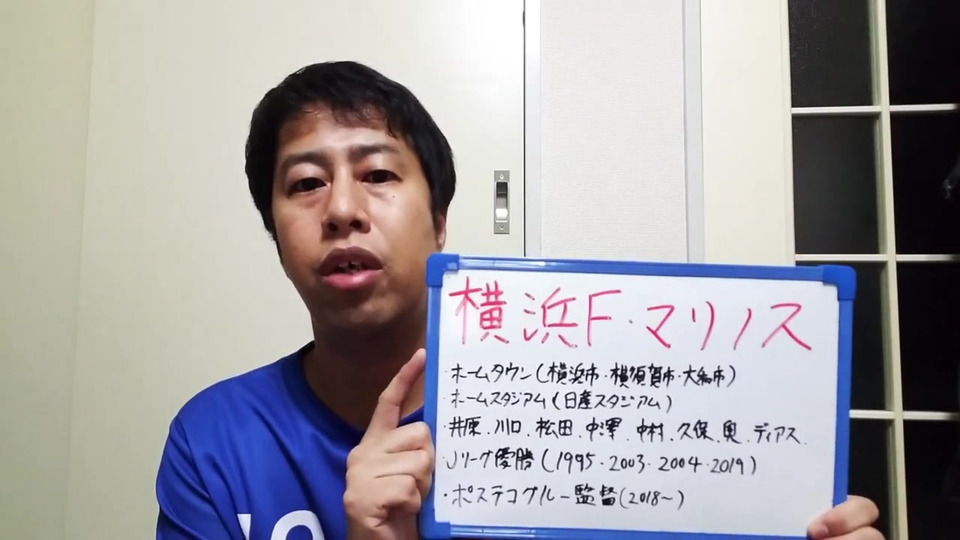 横浜F・マリノス
・ホームタウン(横浜市・横須賀市・大和市)
・ホームスタジアム(日産スタジアム)
・井原、川口、松田、中澤、中村、久保、奥、ディアス、
・Jリーグ優勝(1995・2003・2004・2019)
・ポステコグルー監督(2018~)